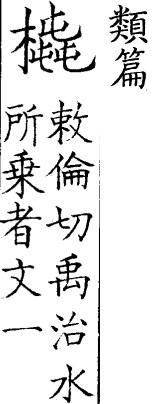 類篇
橇
敕倫切禹治水
所乗者文一